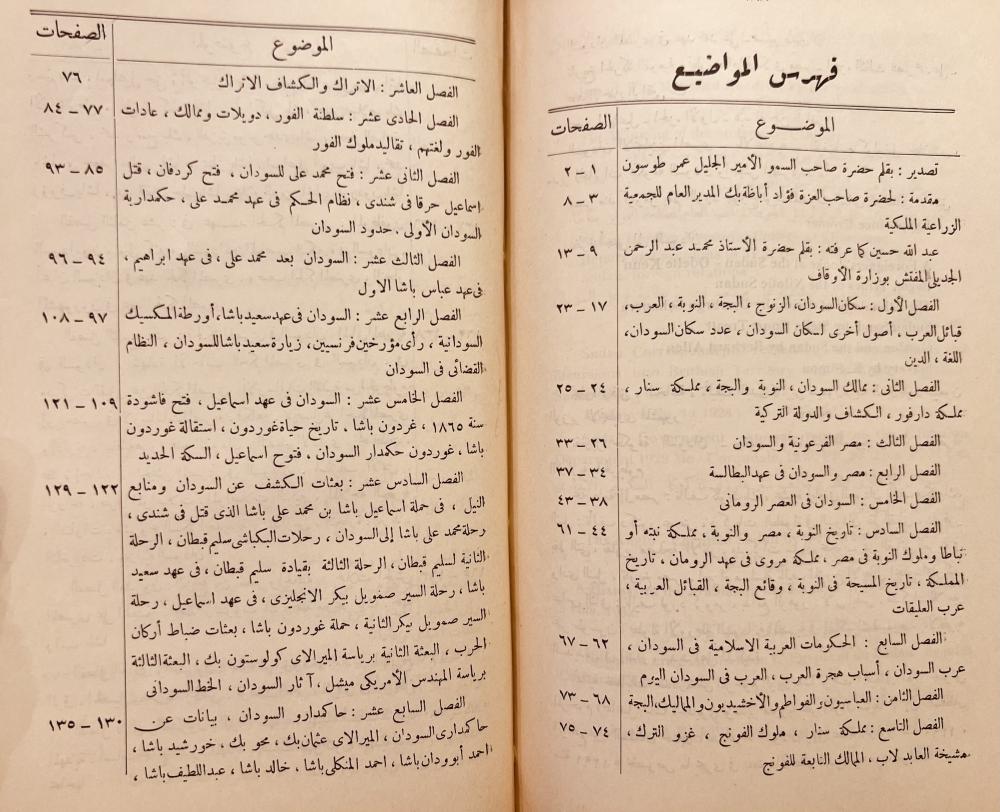 فهرس المواضيع
الموضوع الصفحات
تصدير : بقلم حضرة صاحب السمو الأمير الجليل عمر طوسون ١ – ٢
مقدمة : لحضرة صاحب العزة فؤاد أباظة بك المدير العام للجمعية ٣ – ٨
الزراعية الملكية
عبد الله حسين كما عرفته : بقلم حضرة الأستاذ محمد عبد الرحمن ٩ – ١٣
الجديلى المفتش بوزارة الأوقاف
الفصل الأول : سكان السودان، الزنوج ، البجة ، النوبة ، العرب، ١٧ – ٢٣
قبائل العرب ، أصول أخرى لسكان السودان ، عدد سكان السودان،
اللغة ، الدين
الفصل الثانى : ممالك السودان ، النوبة والبجة ، مملكة سنار ، ٢٤ – ٢٥
مملكة دارفور ، الكشاف والدولة التركية
الفصل الثالث : مصر الفرعونية والسودان ٢٦ – ٣٣
الفصل الرابع : مصر والسودان فى عهد البطالسة ٣٤ – ٣٧
الفصل الخامس : السودان فى العصر الرومانى ٣٨ – ٤٣
الفصل السادس : تاريخ النوبة ، مصر والنوبة ، مملكة نبتة أو ٤٤ – ٦١
نباطا وملوك النوبة فى مصر ، مملكة مروى فى عهد الرومان ، تاريخ
المملكة ، تاريخ المسيحة فى النوبة ، وقائع البجة ، القبائل العربية ،
عرب العليقات
الفصل السابع : الحكومات العربية الاسلامية فى السودان ، ٦٢ – ٦٧
عرب السودان ، أسباب هجرة العرب ، العرب فى السودان اليوم
الفصل الثامن : العباسيون والفواطم والأخشيديون والمماليك، البجة ٦٨ – ٧٣
الفصل التاسع : مملكة سنار ، ملوك الفونج ، غزو الترك ، ٧٤ – ٧٥
مشيخة العابد لاب ، الممالك التابعة للفونج
الموضوع الصفحات
الفصل العاشر : الاتراك والكشاف الاتراك ٧٦
الفصل الحادى عشر : سلطنة الفور ، دويلات وممالك ، عادات ٧٧ – ٨٤
الفور ولغتهم ، تقاليد ملوك الفور
الفصل الثانى عشر : فتح محمد على للسودان . فتح كردفان ، قتل ٨٥ – ٩٣
اسماعيل حرقا فى شندى ، نظام الحكم فى عهد محمد على ، حكمدارية
السودان الأولى . حدود السودان
الفصل الثالث عشر : السودان بعد محمد على ، فى عهد ابراهيم ، ٩٤ – ٩٦
فى عهد عباس باشا الاول
الفصل الرابع عشر : السودان فى عهد سعيد باشا، أورطة المكسيك ٩٧ – ١٠٨
السودانية ، رأى مؤرخين فرنسيين، زيارة سعيد باشا للسودان ، النظام
القضائى فى السودان
الفصل الخامس عشر : السودان فى عهد اسماعيل ، فتح فاشودة ١٠٩ – ١٢١
سنة ١٨٦٥ ، غردون باشا . تاريخ حياة غوردون ، استقالة غوردون
باشا ، غوردون حكمدار السودان . فتوح اسماعيل ، السكة الحديد
الفصل السادس عشر : بعثات الكشف عن السودان ومنابع ١٢٢ – ١٢٩
النيل ، فى حملة اسماعيل باشا بن محمد على باشا الذى قتل فى شندى ،
رحلة محمد على باشا إلى السودان ، رحلات البكباشى سليم قبطان ، الرحلة
الثانية لسليم قبطان، الرحلة الثالثة بقيادة سليم قبطان ، فى عهد سعيد
باشا ، رحلة السير صمويل بيكر الانجليزى ، فى عهد اسماعيل ، رحلة
السير صمويل بيكر الثانية ، حملة غوردون باشا ، بعثات ضباط أركان
الحرب ، البعثة الثانية برياسة الميرالاى كولوستون بك ، البعثة الثالثة
برياسة المهندس الأمريكى ميشل ، آثار السودان ، الخط السودانى
الفصل السابع عشر : حاكمدارو السودان ، بيانات عن ١٣٠ – ١٣٥
حاكمدارى السودان ، الميرالاى عثمان بك ، محو بك ، خورشيد باشا ،
احمد أبوودان باشا ، احمد المنكلى باشا ، خالد باشا ، عبد اللطيف باشا ،